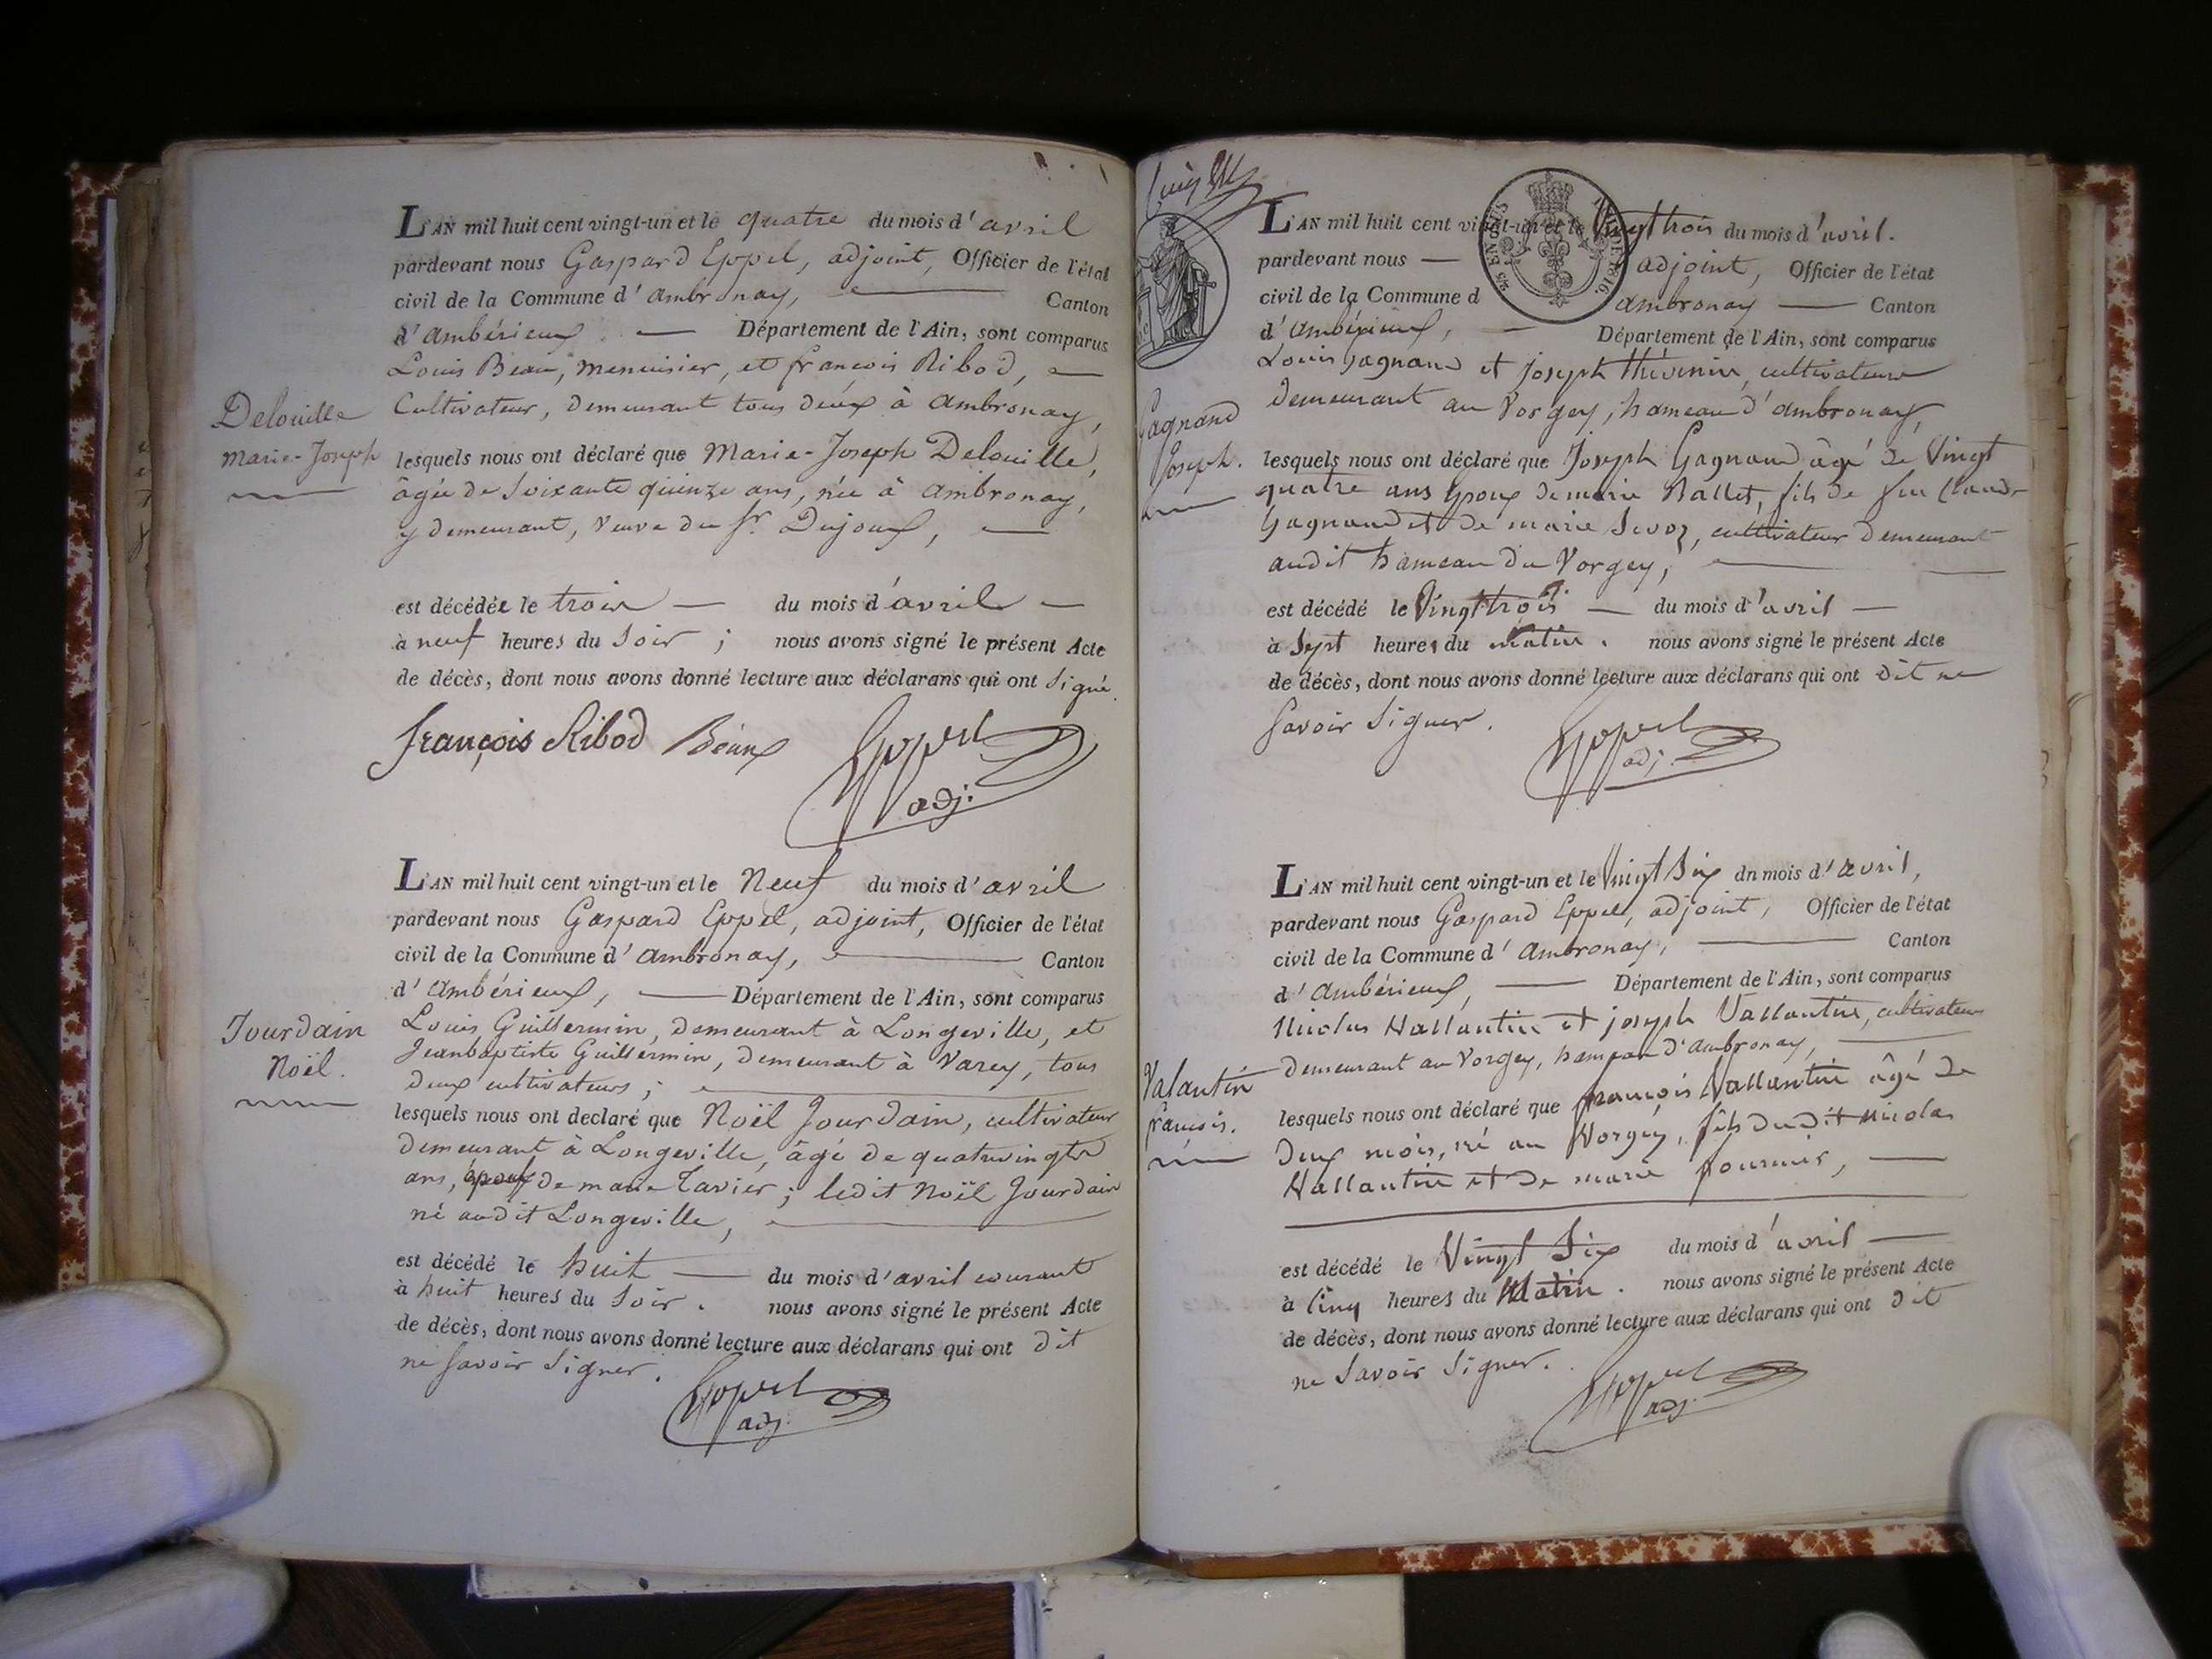 L'AN mil huit cent vingt-un et le quatre du mois d'avril
pardevant nous Gaspard Eppel, adjoint, Officier de l'état
civil de la Commune d'ambronay, Canton
d'ambérieux Département de l'Ain, sont comparus
Louis Beau, menuisier, et françois Ribod,
Cultivateur, demeurant tous deux à ambronay,
Delouille
marie-Joseph
lesquels nous ont déclaré que Marie-Joseph Delouille,
âgée de soixante quinze ans, née à ambronay,
y demeurant, veuve du Sr. Dujoux,
est décédée le trois du mois d'avril
à neuf heures du soir ; nous avons signé le présent Acte
de décès, dont nous avons donné lecture aux déclarans qui ont signé.
françois Ribod Beaux Eppel
adj.
L'AN mil huit cent vingt-un et le Neuf du mois d'avril
pardevant nous Gaspard Eppel, adjoint, Officier de l'état
civil de la Commune d'ambronay, Canton
d'ambérieux, Département de l'Ain, sont comparus
Louis Guillermin, demeurant à Longeville, et
Jeanbaptiste Guillermin, demeurant à Varey, tous
deux cultivateurs ;
Jourdain
Noël.
lesquels nous ont declaré que Noël Jourdain, cultivateur
demeurant à Longeville, âgé de quatrevingts
ans, époux de marie Tavier ; ledit Noël Jourdain
né audit Longeville,
est décédé le huit du mois d'avril courant
à huit heures du soir. nous avons signé le présent Acte
de décès, dont nous avons donné lecture aux déclarans qui ont dit
ne savoir signer.
Eppel
adj.
L'AN mil huit cent vingt-un et le Vingt trois du mois d'avril.
pardevant nous adjoint, Officier de l'état
civil de la Commune d ambronay Canton
d'ambérieux, Département de l'Ain, sont comparus
Louis Gagnand et Joseph thévenin, cultivateurs
demeurant au Vorgey, hameau d'ambronay,
Gagnand
Joseph.
lesquels nous ont déclaré que Joseph Gagnand âgé de Vingt
quatre ans époux de marie Nallet, fils de feu Claude
Gagnand et de marie Sevoz, cultivateur demeurant
audit hameau du Vorgey,
est décédé le Vingt trois du mois d'avril
à sept heures du matin. nous avons signé le présent Acte
de décès, dont nous avons donné lecture aux déclarans qui ont dit ne
savoir signer.
Eppel
adj.
L'AN mil huit cent vingt-un et le Vingt Six du mois d'avril,
pardevant nous Gaspard Eppel, adjoint, Officier de l'état
civil de la Commune d'ambronay, Canton
d'ambérieux, Département de l'Ain, sont comparus
Nicolas Vallantin et joseph Vallantin, cultivateurs
demeurant au Vorgey, hameau d'ambronay,
Valantin
françois.
lesquels nous ont déclaré que françois Vallantin âgé de
deux mois, né au Vorgey, fils dudit Nicolas
Vallantin et de marie fournier,
est décédé le Vingt Six du mois d'avril
à cinq heures du Matin. nous avons signé le présent Acte
de décès, dont nous avons donné lecture aux déclarans qui ont dit
ne savoir signer.
Eppel
adj.